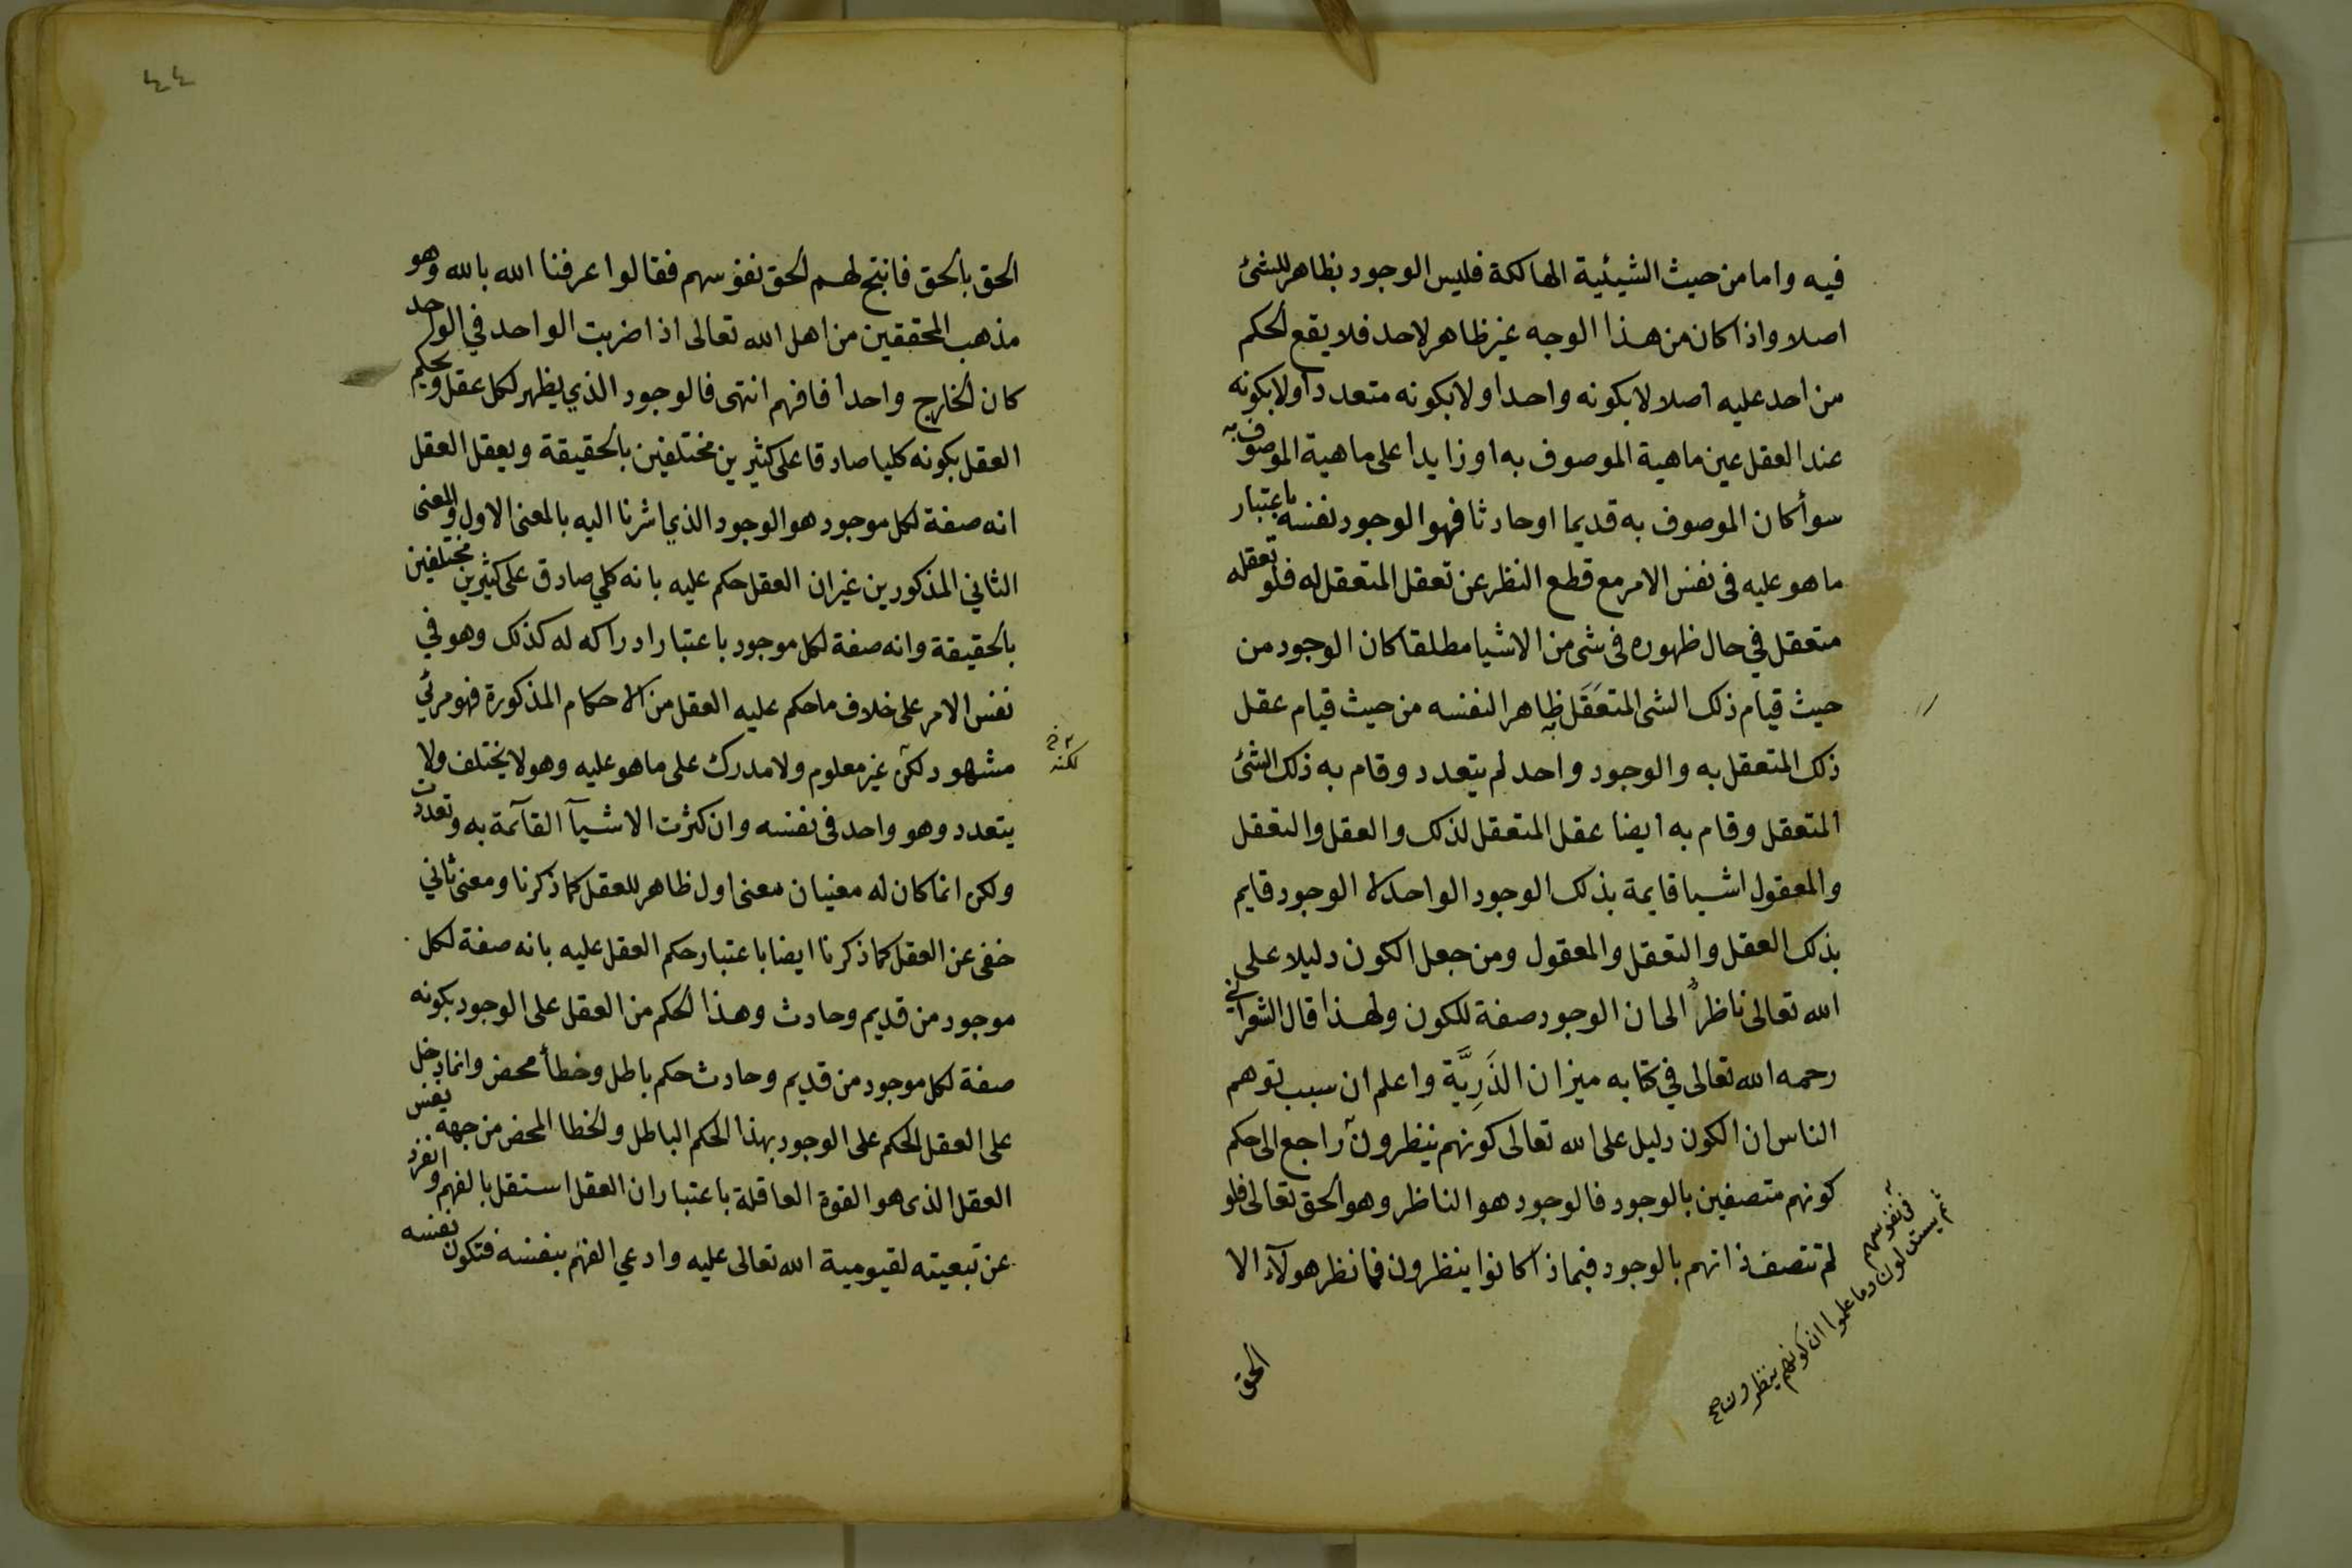 فيه واما من حيث الشيئية الهالكة فليس الوجود بظاهر للشئ
اصلا واذا كان من هذا الوجه غير ظاهر لاحد فلا يقع الحكم
من احد عليه اصلا لا بكونه واحدا ولا بكونه متعددا ولا بكونه
عند العقل عين ماهية الموصوف به او زايدا على ماهية الموصوف به
سوأ كان الموصوف به قديما او حادثا فهو الوجود نفسه باعتبار
ما هو عليه فى نفس الامر مع قطع النظر عن تعقل المتعقل له فلو تعقله
متعقل في حال ظهوره فى شى من الاشيا مطلقا كان الوجود من
حيث قيام ذلك الشى المتعَقَل به ظاهرا لنفسه من حيث قيام عقل
ذلك المتعقل به والوجود واحد لم يتعدد وقام به ذلك الشئ
المتعقل وقام به ايضا عقل المتعقل لذلك والعقل والتعقل
والمعقول اشيا قايمة بذلك الوجود الواحد لا الوجود قايم
بذلك العقل والتعقل والمعقول ومن جعل الكون دليلا على
الله تعالى ناظرٌ الى ان الوجود صفة للكون ولهذا قال الشعراني
رحمه الله تعالى في كتابه ميزان الذَرِيَّة واعلم ان سبب توهم
الناس ان الكون دليل على الله تعالى كونهم ينظرون راجع الى حكم
كونهم متصفين بالوجود فالوجود هو الناظر وهو الحق تعالى فلو
لم تتصف ذاتهم بالوجود فبماذا كانوا ينظرون فما نظر هولآء الا
فى نفوسهم
ثم يستدلون وما علموا ان كونهم ينظرون صح
الحق
٤٤
الحق بالحق فانتج لهم الحق نفوسهم فقالوا عرفنا الله بالله وهو
مذهب المحققين من اهل الله تعالى اذا ضربت الواحد في الواحد
كان الخارج واحدا فافهم انتهى فالوجود الذي يظهر لكل عقل ويحكم
العقل بكونه كليا صادقا على كثيرين مختلفين بالحقيقة ويعقل العقل
انه صفة لكل موجود هو الوجود الذي اشرنا اليه بالمعنى الاول والمعنى
الثاني المذكورين غير ان العقل حكم عليه بانه كلي صادق على كثيرين مختلفين
بالحقيقة وانه صفة لكل موجود باعتبار ادراكه له كذلك وهو في
نفس الامر على خلاف ما حكم عليه العقل من الاحكام المذكورة فهو مرئي
مشهود لكن غير معلوم ولا مدرك على ما هو عليه وهو لا يختلف ولا
لكنه خ
يتعدد وهو واحد فى نفسه وان كثرت الاشيآ القآئمة به وتعددت
ولكن انما كان له معنيان معنى اول ظاهر للعقل كما ذكرنا ومعنى ثاني
خفى عن العقل كما ذكرنا ايضا باعتبار حكم العقل عليه بانه صفة لكل
موجود من قديم وحادث وهذا الحكم من العقل على الوجود بكونه
صفة لكل موجود من قديم وحادث حكم باطل وخطأ محض وانما دخل
على العقل الحكم على الوجود بهذا الحكم الباطل والخطا المحض من جهة نفس
العقل الذى هو القوة العاقلة باعتبار ان العقل استقل بالفهم وانفرد
عن تبعيته لقيومية الله تعالى عليه وادعي الفهم بنفسه فتكون نفسه